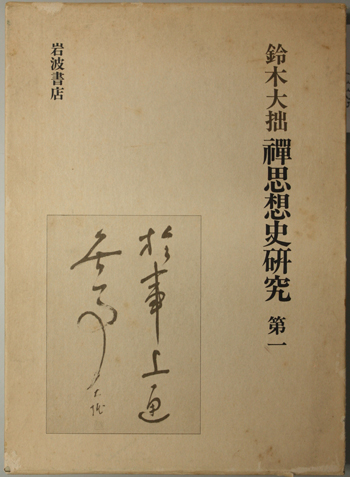 鈴木大拙 禪思想史研究 第一
岩波書店
於事上通
無事
大拙